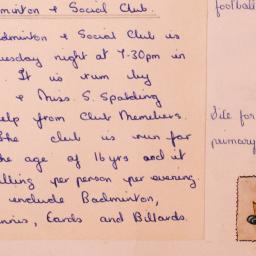 minton & Social Club.
dminton & Social Club is
uesday night at 7-30pm in
. It is run by
& Miss. S. Spalding
elp from Club Members.
he club is run for
he age of 16 yrs and it
illing per person per evening.
include Badminton,
nnis, Cards and Billards.
football
Site for
primary